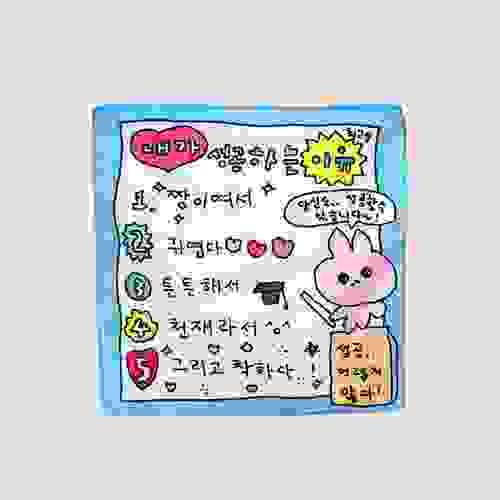 성공하는 이유
1. 짱이여서
2 귀엽다
3 튼튼해서
4 천재라서 ^o^
5 그리고 착하다..!
당신도.. 성공할수
있습니다~!
성공,
어렵지
않다!